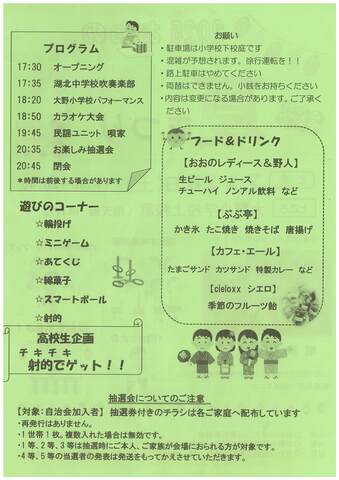 プログラム
17:30 オープニング
17:35 湖北中学校吹奏楽部
18:20 大野小学校パフォーマンス
18:50 カラオケ大会
19:45 民謡ユニット 唄家
20:35 お楽しみ抽選会
20:45 閉会
*時間は前後する場合があります
お願い
・駐車場は小学校下校庭です
・混雑が予想されます。徐行運転を!!
・路上駐車はやめてください
・両替はできません。小銭をお持ちください
・内容は変更になる場合があります。ご了承ください
フード&ドリンク
【おおのレディース&野人】
生ビール ジュース
チューハイ ノンアル飲料 など
【ぶぶ亭】
かき氷 たこ焼き 焼きそば 唐揚げ
【カフェ・エール】
たまごサンド カツサンド 特製カレー など
【cieloxx シエロ】
季節のフルーツ飴
遊びのコーナー
☆輪投げ
☆ミニゲーム
☆あてくじ
☆綿菓子
☆スマートボール
☆射的
高校生企画
チキチキ
射的でゲット!!
抽選会についてのご注意
【対象:自治会加入者】 抽選券付きのチラシは各ご家庭へ配布しています
・再発行はありません。
・1世帯1枚。複数入れた場合は無効です。
・1等、2等、3等は抽選時にご本人、ご家族が会場におられる方が対象です。
・4等、5等の当選者の発表は発送をもってかえさせていただきます。